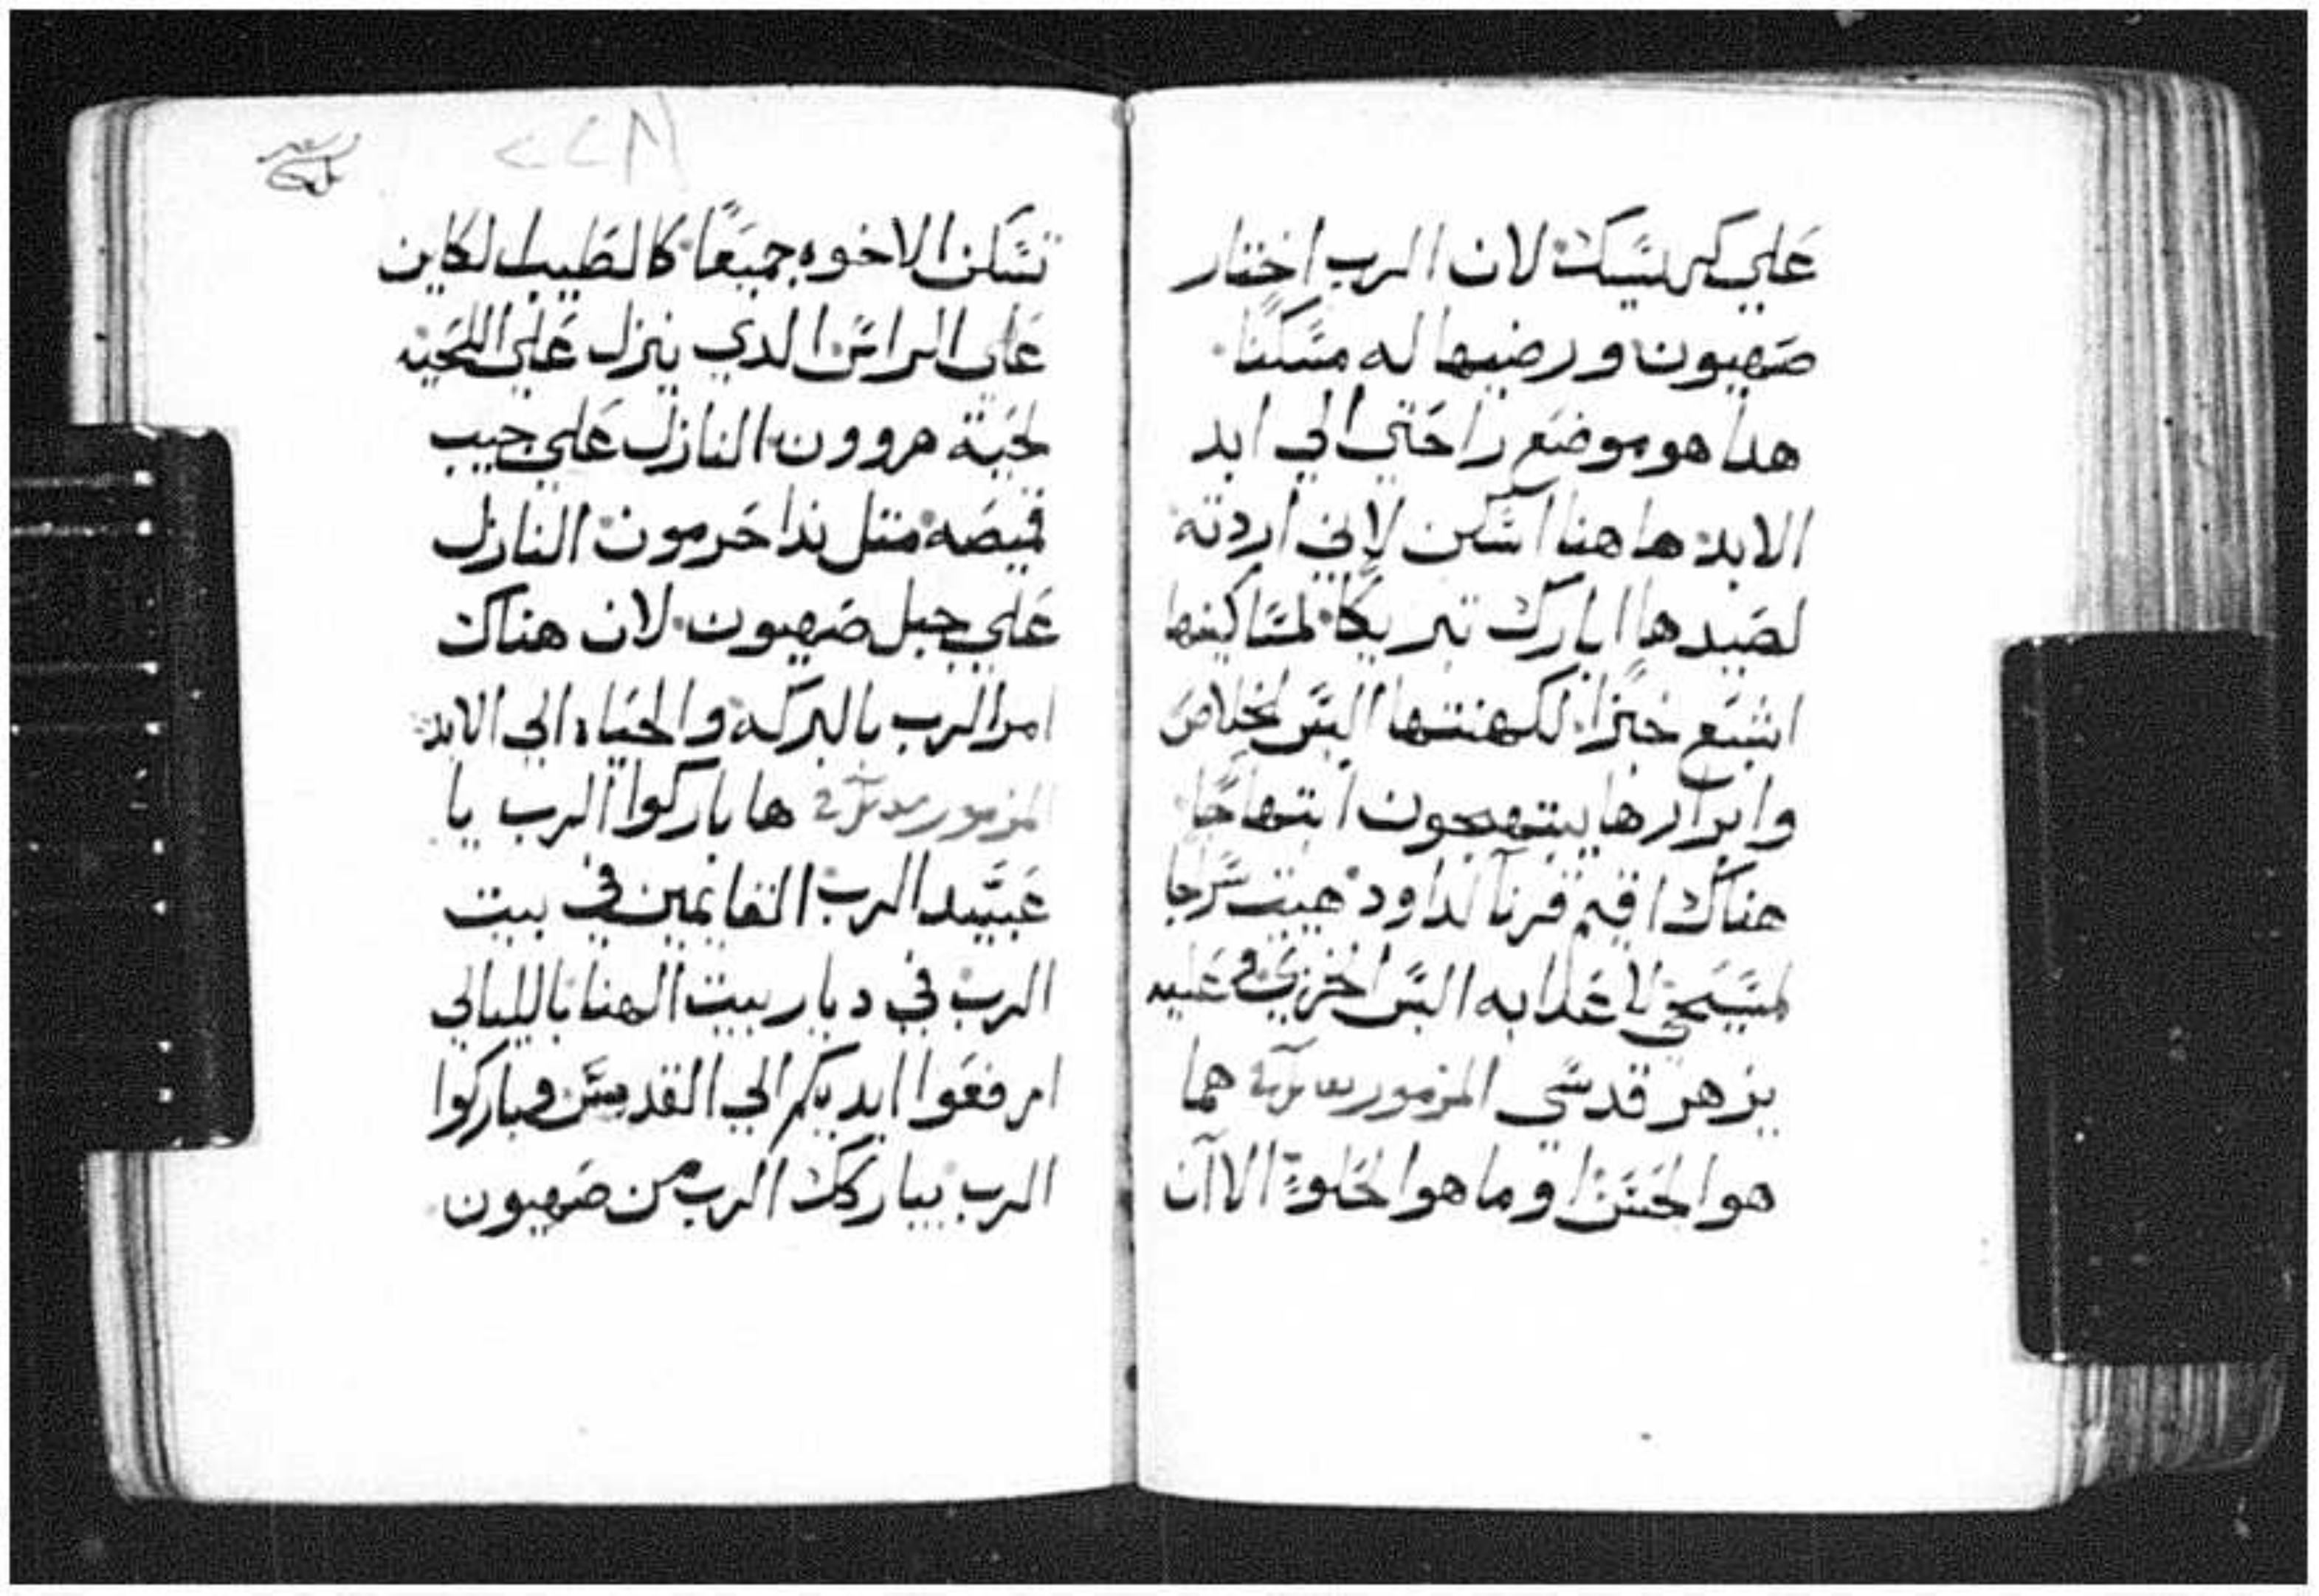 علي كرسيك لان الرب اختار
صهيون ورضيها له مسكنا
هدا هو موضع راحتي الي ابد
الابد هاهنا اسكن لاني اردته
لصيدها ابارك تبريكا لمساكينها
اشبع خبزا لكهنتها البس الخلاص
وابرارها يبتهجون ابتهاجا
هناك اقيم قرنا لداود هييت سرجا
لمسيحي لاعدايه البس الخزي وعليه
يزهر قدسي المزمور هما
هوا الحسن وما هوا الحلو الا ان
تسكن الاخوه جميعا كالطيب الكاين
علي الراس الدي ينزل علي اللحيه
لحية هرون النازل علي جيب
قميصه متل ندا حرمون النازل
علي جبل صهيون لان هناك
امر الرب بالبركه والحياه الي الابد
المزمور ها باركوا الرب يا
عبيد الرب القايمين في بيت
الرب في ديار بيت الهنا بالليالي
ارفعوا ايديكم الي القدس وباركوا
الرب يباركك الرب من صهيون